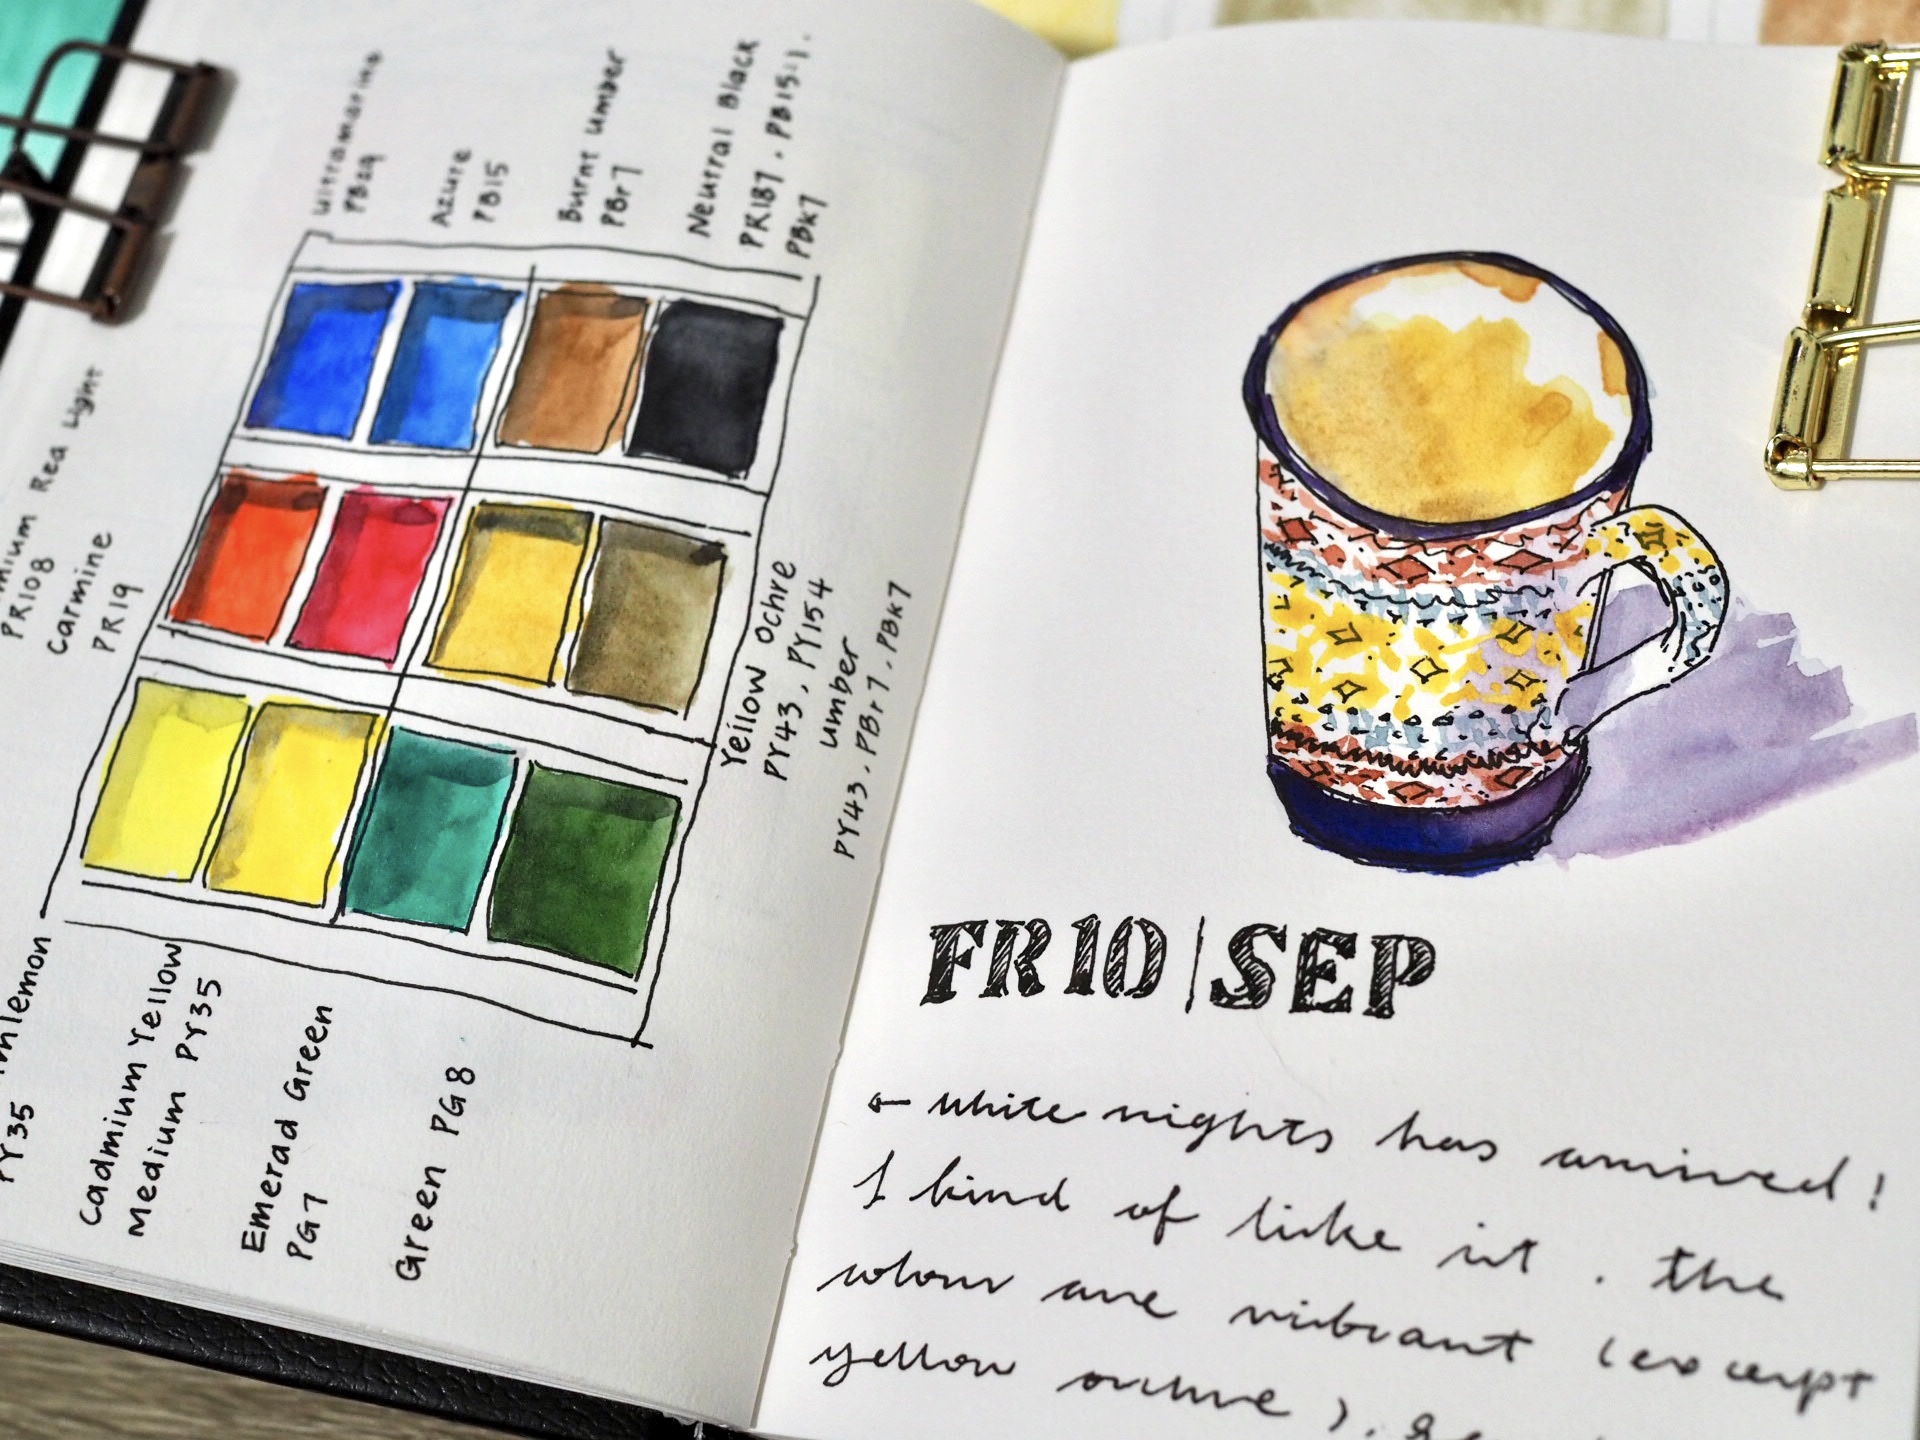 Ultramarine
PB29
Azure
PB15
Burnt umber
PBr7
Neutral Black
PR187, PB15:1,
PBk7
Red Light
PR108
Carmine
PR19
Yellow Ochre
PY43, PY154
umber
PY43, PBr7, PBk7
PY35
Cadmium Yellow
Medium PY35
Emerad Green
PG7
Green PG8
FR10|SEP
← white nights has arrived!
I kind of like it. the
colour are vibrant (except
yellow ochre).